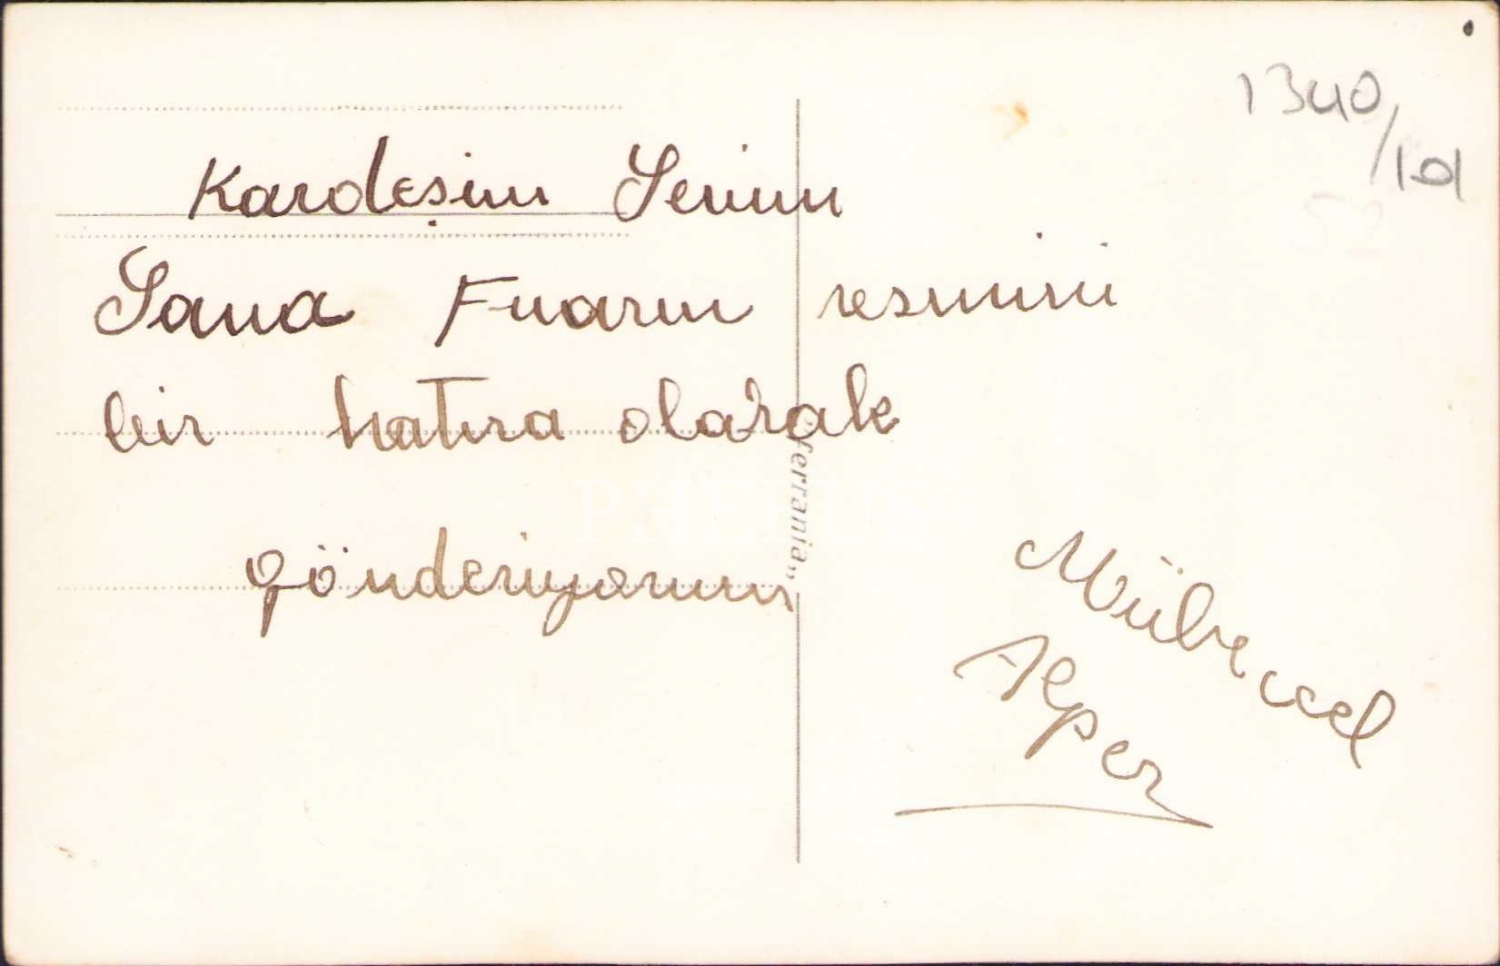 1340/101
Kardeşim Sevim
Sana Fuarın resmini
bir hatıra olarak
gönderiyorum
Mübeccel
Alper
ferrania„
PHEBUS